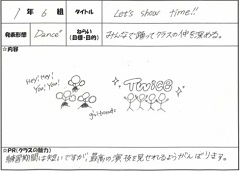 1年6組 タイトル Let's show time!!
発表形態 Dance ねらい(目標・目的) みんなで踊ってクラスの仲を深める。
☆内容
Hey! Hey!
You! You!
Twice
girlfriend
☆PR(クラスの魅力)
練習期間は短いですが、最高の演技を見せれるようがんばります。